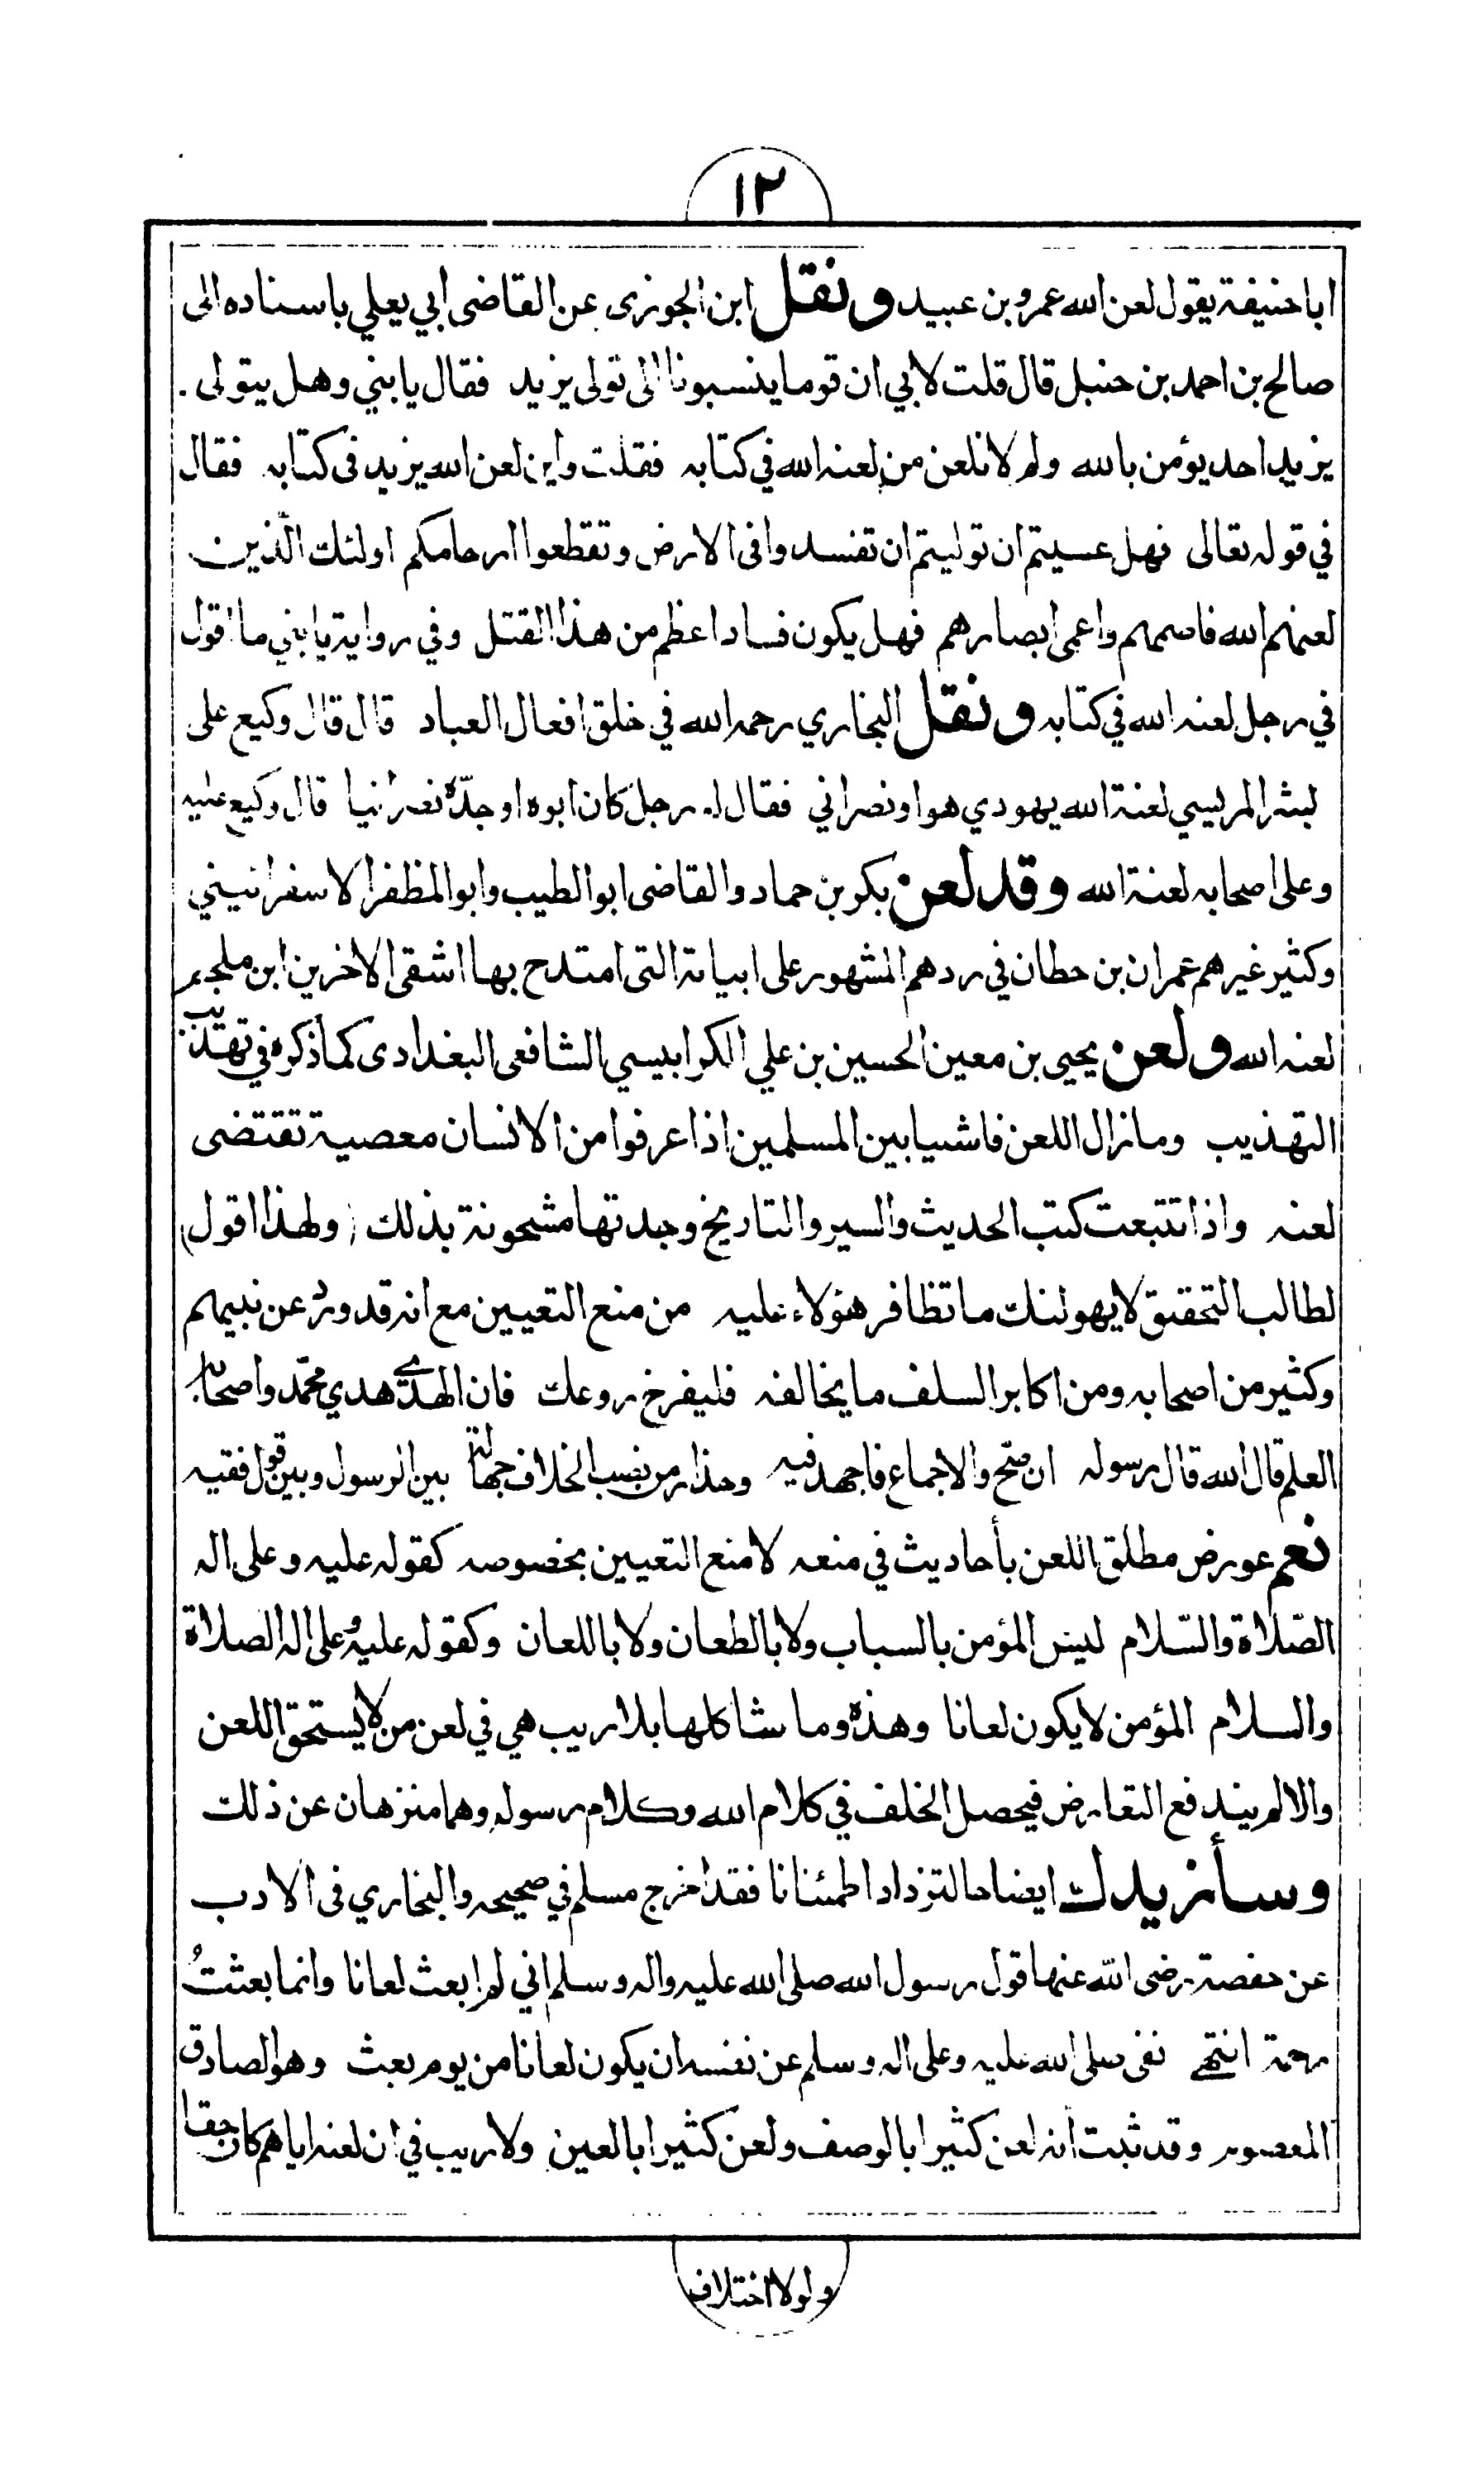 ١٢
اباحنيفة يقول لعن الله عمرو بن عبيد ونقل ابن الجوزى عن القاضى ابي يعلي باسناده الى
صالح بن احمد بن حنبل قال قلت لابي ان قوما ينسبونا الى تولى يزيد فقال يا بني وهل يتولى
يزيد احد يؤمن بالله ولم لا نلعن من لعنه الله في كتابه فقلت واين لعن الله يزيد فى كتابه فقال
في قوله تعالى فهل عسيتم ان توليتم ان تفسدوا فى الارض وتقطعوا ارحامكم اولئك الّذين
لعنهم الله فاصمهم واعمى ابصارهم فهل يكون فساد اعظم من هذا القتل وفي رواية يا بني ما اقول
في رجل لعنه الله في كتابه ونقل البخاري رحمه الله في خلق افعال العباد قال قال وكيع على
لبشر المريسي لعنة الله يهودي هو او نصراني فقال له رجل كان ابوه او جدّه نصرانيا قال وكيع عليه
وعلى اصحابه لعنة الله وقد لعن بكر بن حماد والقاضى ابو الطيب وابو المظفر الاسفرائيني
وكثير غيرهم عمران بن حطان في ردهم المشهور على ابياته التى امتدح بها اشقى الاخرين ابن ملجم
لعنه الله ولعن يحيى بن معين الحسين بن علي الكرابيسي الشافعى البغدادى كما ذكره في تهذيب
التهذيب ومازال اللعن فاشيا بين المسلمين اذا عرفوا من الانسان معصية تقتضى
لعنه واذا تتبعت كتب الحديث والسير والتاريخ وجدتها مشحونة بذلك (ولهذا اقول)
لطالب التحقيق لا يهولنك ما تظافر هؤلاء عليه من منع التعيين مع انه قد ورد عن نبيهم
وكثير من اصحابه ومن اكابر السلف ما يخالفه فليفرخ روعك فان الهدي هدي محمّد واصحابه
العلم قال الله قال رسوله ان صح والاجماع فاجهد فيه وحذار من نصب الخلاف جهالة بين الرسول وبين قول فقيه
نعم عورض مطلق اللعن بأحاديث في منعه لا منع التعيين بخصوصه كقوله عليه وعلى اله
الصّلاة والسّلام ليس المؤمن بالسباب ولا بالطعان ولا باللعان وكقوله عليه وعلى اله الصلاة
والسلام المؤمن لا يكون لعانا وهذه وما شاكلها بلا ريب هي في لعن من لا يستحق اللعن
والا لم يندفع التعارض فيحصل الخلف في كلام الله وكلام رسوله وهما منزهان عن ذلك
وسأزيدك ايضاحا لتزداد اطمئنانا فقد اخرج مسلم في صحيحه والبخاري فى الادب
عن حفصة رضى الله عنها قول رسول الله صلى الله عليه واله وسلم اني لم ابعث لعانا وانما بعثتُ
رحمة انتهى نفى صلى الله عليه وعلى اله وسلم عن نفسه ان يكون لعانا من يوم بعث وهو الصادق
المعصوم وقد ثبت انه لعن كثيرا بالوصف ولعن كثيرا بالعين ولا ريب في ان لعنه اياهم كان حقا
ولولا اختلاف